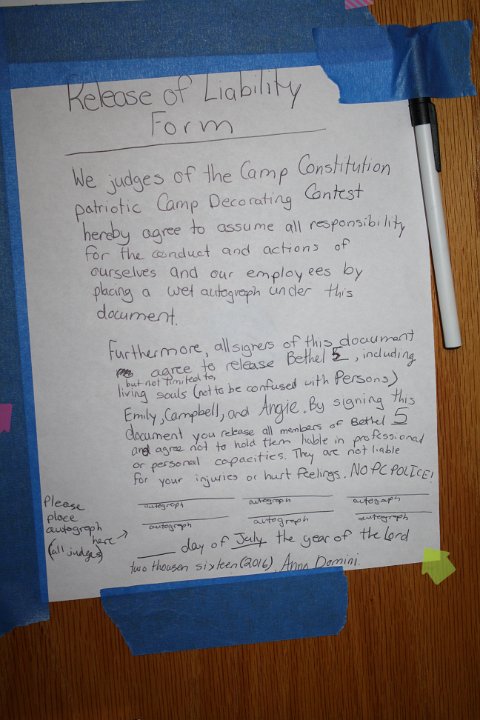 Release of Liability
Form
We judges of the Camp Constitution
patriotic Camp Decorating Contest
hereby agree to assume all responsibility
for the conduct and actions of
ourselves and our employees by
placing a wet autograph under this
document.
Furthermore, all signers of this document
agree to release Bethel 5, including
but not limited to,
living souls (not to be confused with Persons)
Emily, Campbell, and Angie. By signing this
document you release all members of Bethel 5
and agree not to hold them liable in professional
or personal capacities. They are not liable
for your injuries or hurt feelings. NO PC POLICE!
autograph autograph autograph
autograph autograph autograph
Please
place
autograph
here →
(all judges)
___ day of July the year of the Lord
two thousen sixteen (2016) Anno Domini.